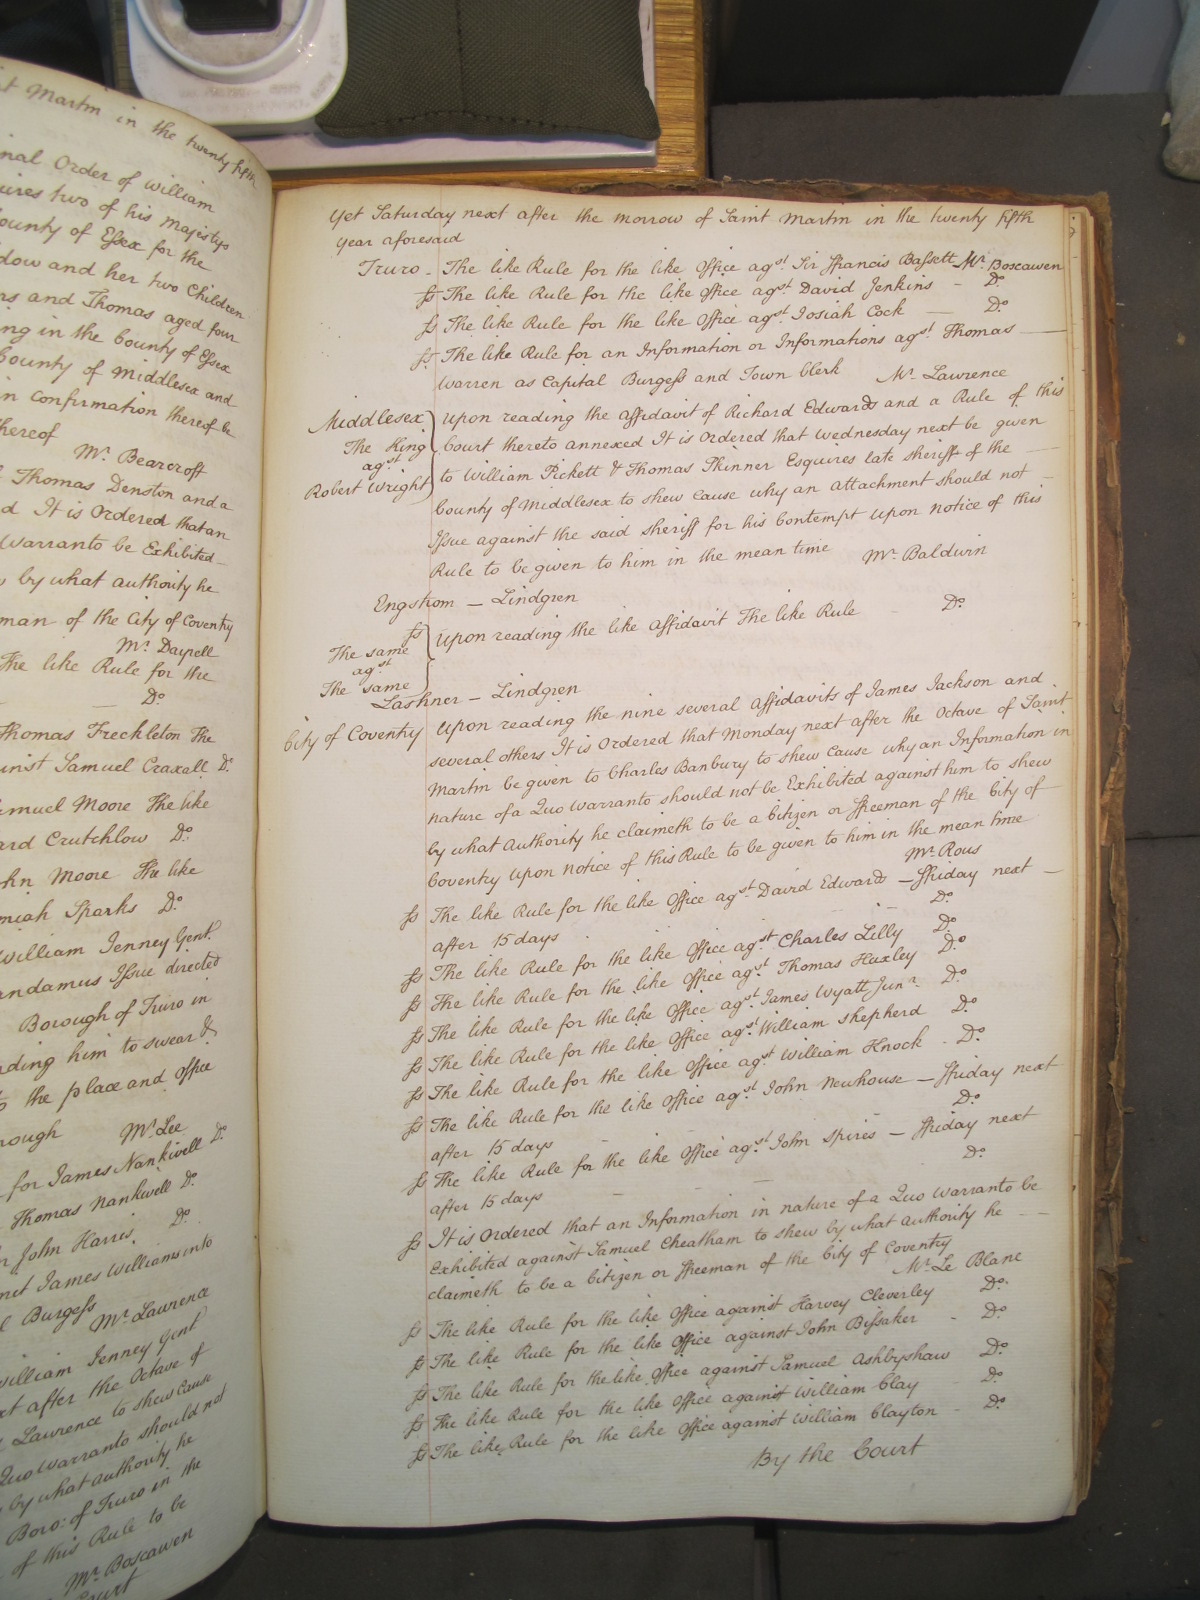 t Martin in the twenty fifth
nal Order of William
uires two of his Majestys
ounty of Essex for the
dow and her two Children
ns and Thomas aged four
ng in the County of Essex
County of Middlesex and
in confirmation thereof be
hereof
Mr. Bearcroft
Thomas Denston and a
d It is Ordered that an
Warranto be Exhibited
by what authority he
man of the City of Coventry
Mr. Dayrell
The like Rule for the
Do.
Thomas Freckleton The
inst Samuel Craxall Do.
amuel Moore The like
ard Crutchlow Do.
hn Moore The like
miah Sparks Do.
William Jenney Gent.
andamus Issue directed
Borough of Truro in
ding him to swear &
the place and office
rough Mr. Lee
for James Nankivell Do.
Thomas Nankivell Do.
John Harris Do.
net James Williams into
l Burgess
Mr. Lawrence
William Jenney Gent
xt after the Octave of
Lawrence to shew cause
Quo Warranto should not
by what authority he
Boro: of Truro in the
of this Rule to be
Mr. Boscawen
Court
Yet Saturday next after the morrow of Saint Martin in the twenty fifth
Year aforesaid
Truro - The like Rule for the like Office agst. Sir Ffrancis Bassett Mr. Boscawen
ss The like Rule for the like Office agst. David Jenkins - Do.
ss The like Rule for the like Office agst. Josiah Cock - Do.
ss The like Rule for an Information or Informations agst. Thomas
Warren as Capital Burgess and Town Clerk Mr. Lawrence
Middlesex
The King
agst
Robert Wright
Upon reading the affidavit of Richard Edwards and a Rule of this
Court thereto annexed It is Ordered that Wednesday next be given
to William Pickett & Thomas Skinner Esquires late sheriff of the
County of Middlesex to shew Cause why an Attachment should not
Issue against the said sheriff for his Contempt upon notice of this
Rule to be given to him in the mean time Mr. Baldwin
Engstrom - Lindgren
ss
The same
agst
The same
Upon reading the like affidavit The like Rule - Do.
Lashner - Lindgren
City of Coventry Upon reading the nine several Affidavits of James Jackson and
several others It is Ordered that Monday next after the Octave of Saint
Martin be given to Charles Banbury to shew Cause why an Information in
nature of a Quo Warranto should not be Exhibited against him to shew
by what Authority he claimeth to be a Citizen or Ffreeman of the City of
Coventry Upon notice of this Rule to be given to him in the mean time
Mr. Rous
ss The like Rule for the like Office agst. David Edwards - Ffriday next -
after 15 days Do.
ss The like Rule for the like Office agst. Charles Lilly Do.
ss The like Rule for the like Office agst. Thomas Huxley Do.
ss The like Rule for the like Office agst. James Wyatt Junr. Do.
ss The like Rule for the like Office agst. William Shepherd Do.
ss The like Rule for the like Office agst. William Knock - Do.
ss The like Rule for the like Office agst. John Newhouse - Ffriday next
after 15 days Do.
ss The like Rule for the like Office agst. John Spires - Ffriday next
after 15 days Do.
ss It is Ordered that an Information in nature of a Quo Warranto be
Exhibited against Samuel Cheatham to shew by what authority he
claimeth to be a Citizen or Ffreeman of the City of Coventry
Mr. Le Blanc
ss The like Rule for the like Office against Harvey Cleverley Do.
ss The like Rule for the like Office against John Bissaker - Do.
ss The like Rule for the like Office against Samuel Ashbyshaw Do.
ss The like Rule for the like Office against William Clay Do.
ss The like Rule for the like Office against William Clayton - Do.
By the Court